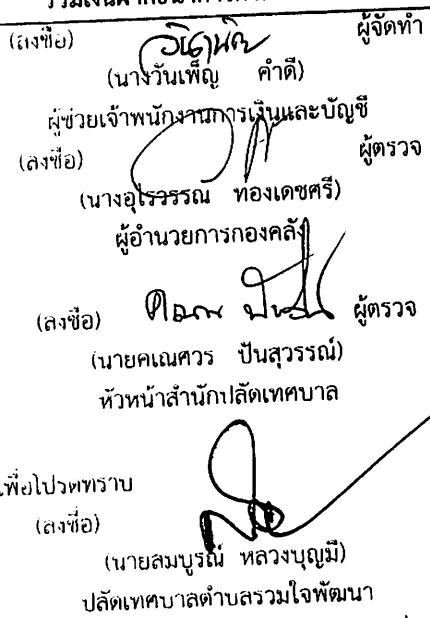 (ลงชื่อ) ผู้จัดทำ
(นางวันเพ็ญ คำดี)
ผู้ช่วยเจ้าพนักงานการเงินและบัญชี
(ลงชื่อ) ผู้ตรวจ
(นางอุไรวรรณ ทองเดชศรี)
ผู้อำนวยการกองคลัง
(ลงชื่อ) ผู้ตรวจ
(นายคเณศวร ปันสุวรรณ์)
หัวหน้าสำนักปลัดเทศบาล
เพื่อโปรดทราบ
(ลงชื่อ)
(นายสมบูรณ์ หลวงบุญมี)
ปลัดเทศบาลตำบลรวมใจพัฒนา